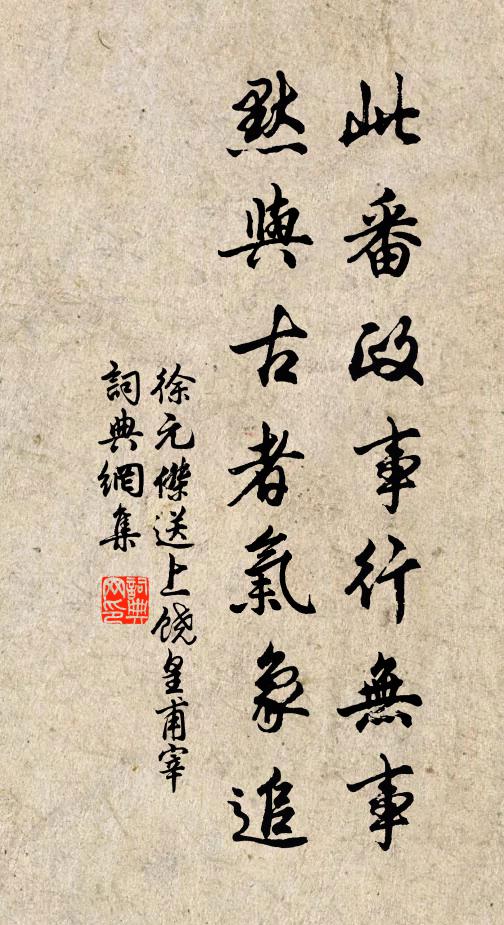 此番政事行無事
默與古者氣象追
徐元傑送上饒皇甫宰
詞典網集
詞典
网印